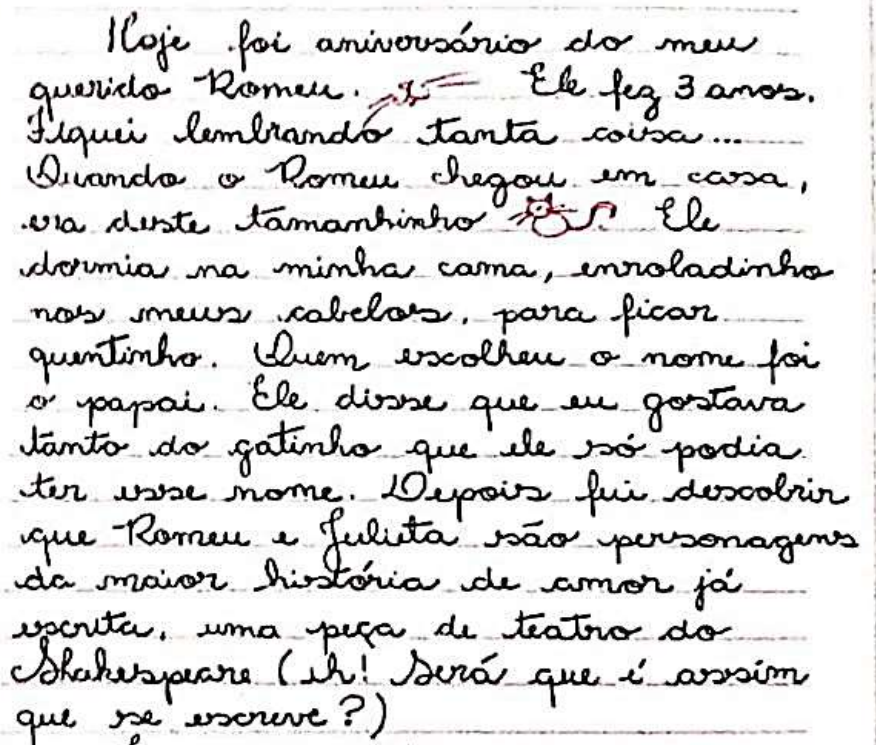 Hoje foi aniversário do meu
querido Romeu. Ele fez 3 anos.
Fiquei lembrando tanta coisa...
Quando o Romeu chegou em casa,
era deste tamanhinho Ele
dormia na minha cama, enroladinho
nos meus cabelos, para ficar
quentinho. Quem escolheu o nome foi
o papai. Ele disse que eu gostava
tanto do gatinho que ele só podia
ter esse nome. Depois fui descobrir
que Romeu e Julieta são personagens
da maior história de amor já
escrita, uma peça de teatro do
Shakespeare (ih! Será que é assim
que se escreve?)